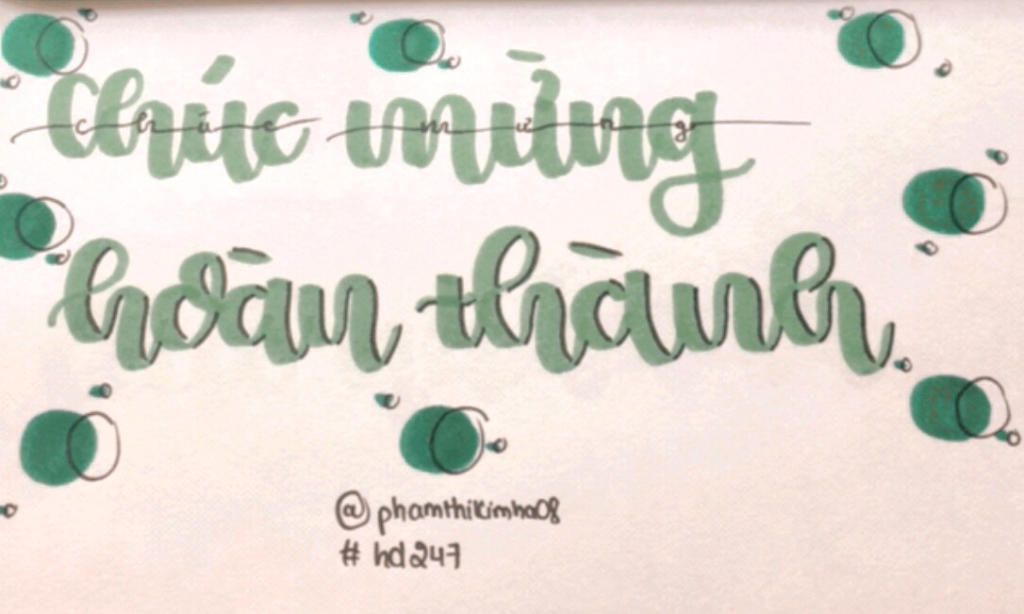 chúc mừng
hoàn thành
@phamthikimha08
#hd247